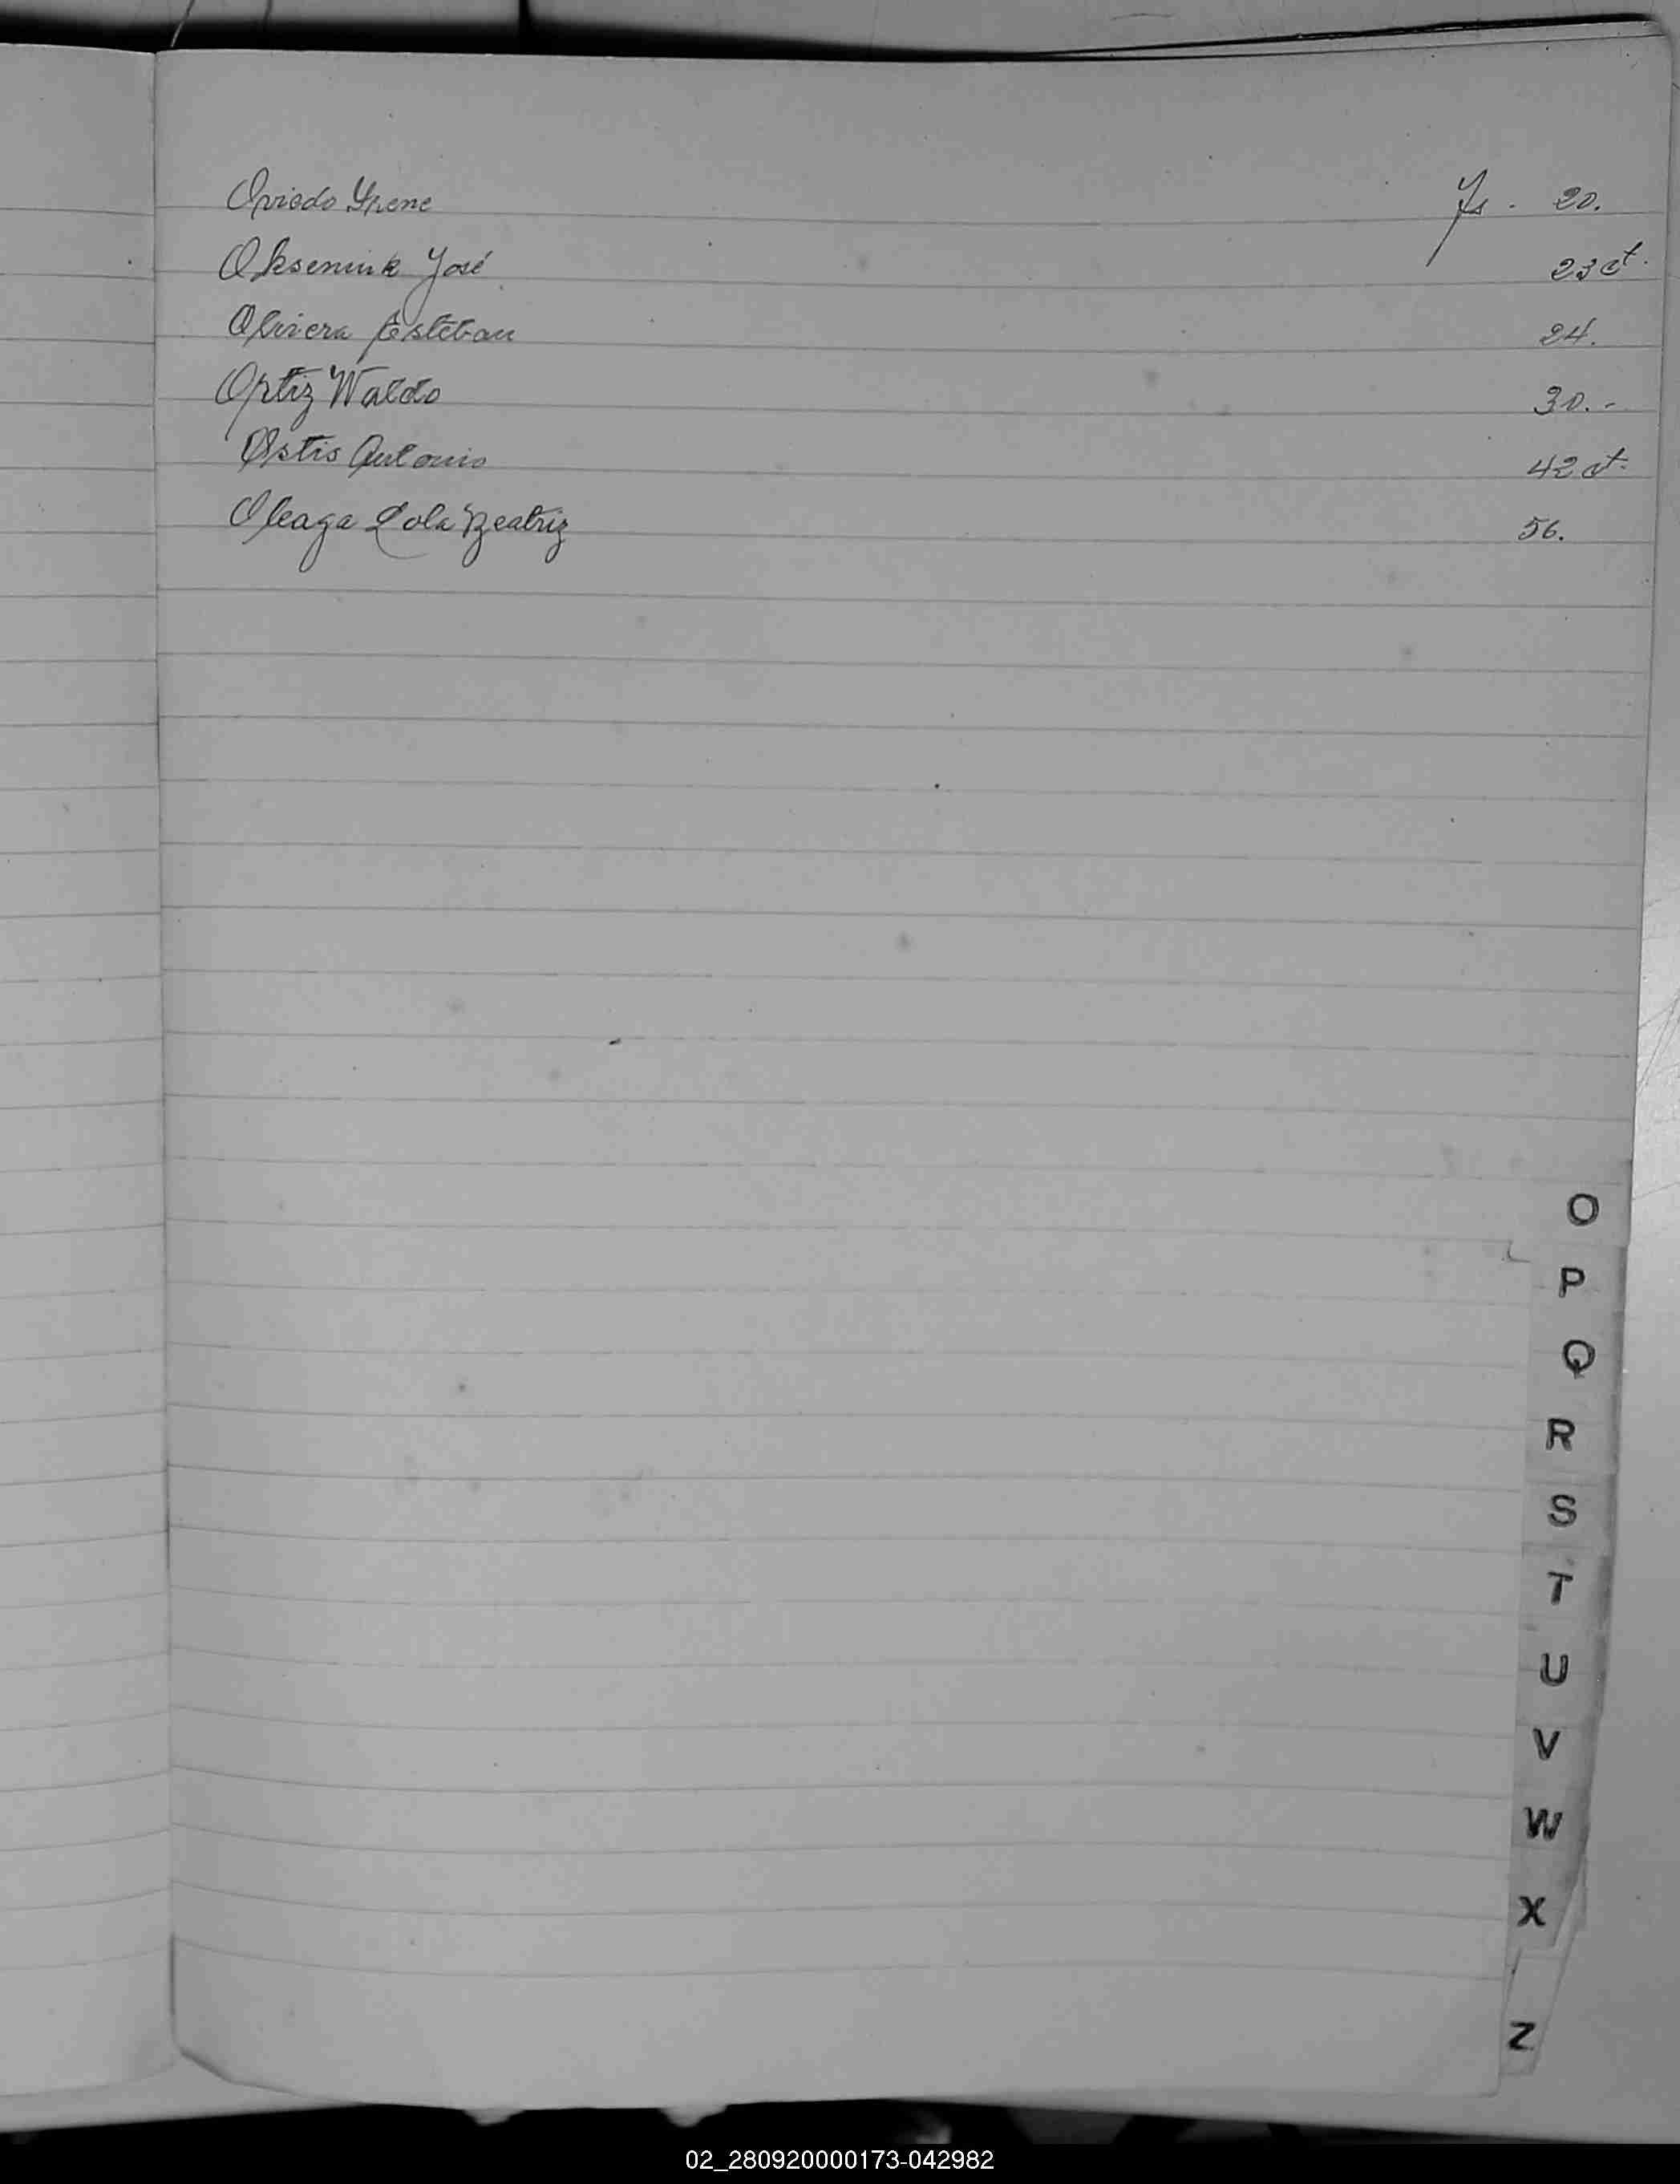 Oviedo Yrene fs. 20.
Okseniuk José 23 ct.
Olivera Esteban 24.
Ortiz Waldo 30.-
Ostis Antonio 42 ct.
Oleaga Lola Beatriz 56.
O
P
Q
R
S
T
U
V
W
X
Z
02_280920000173-042982